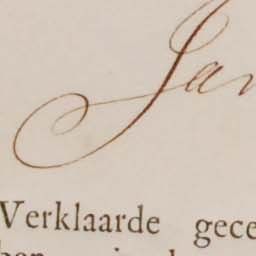 Jan
Verklaarde gece